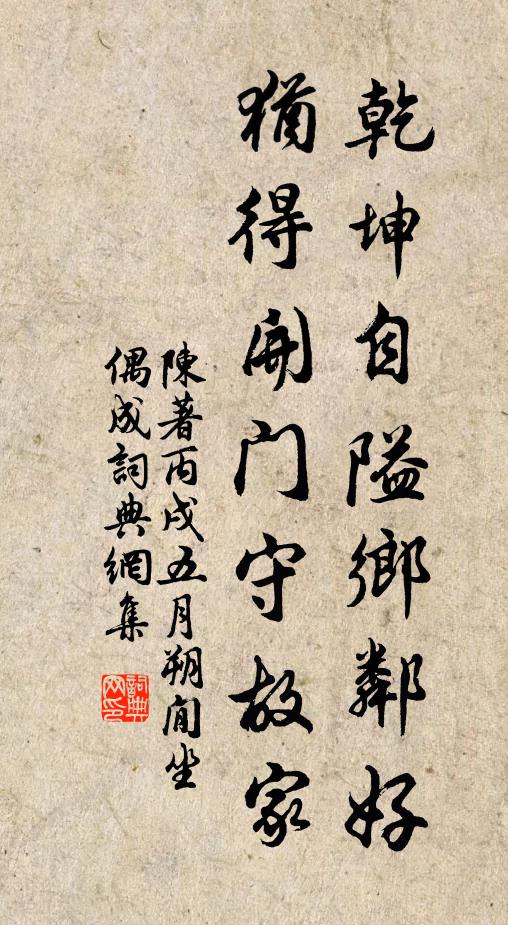 乾坤自隘鄉鄰好
猶得開門守故家
陳著丙戌五月朔閒坐
偶成詞典網集
詞典
网印